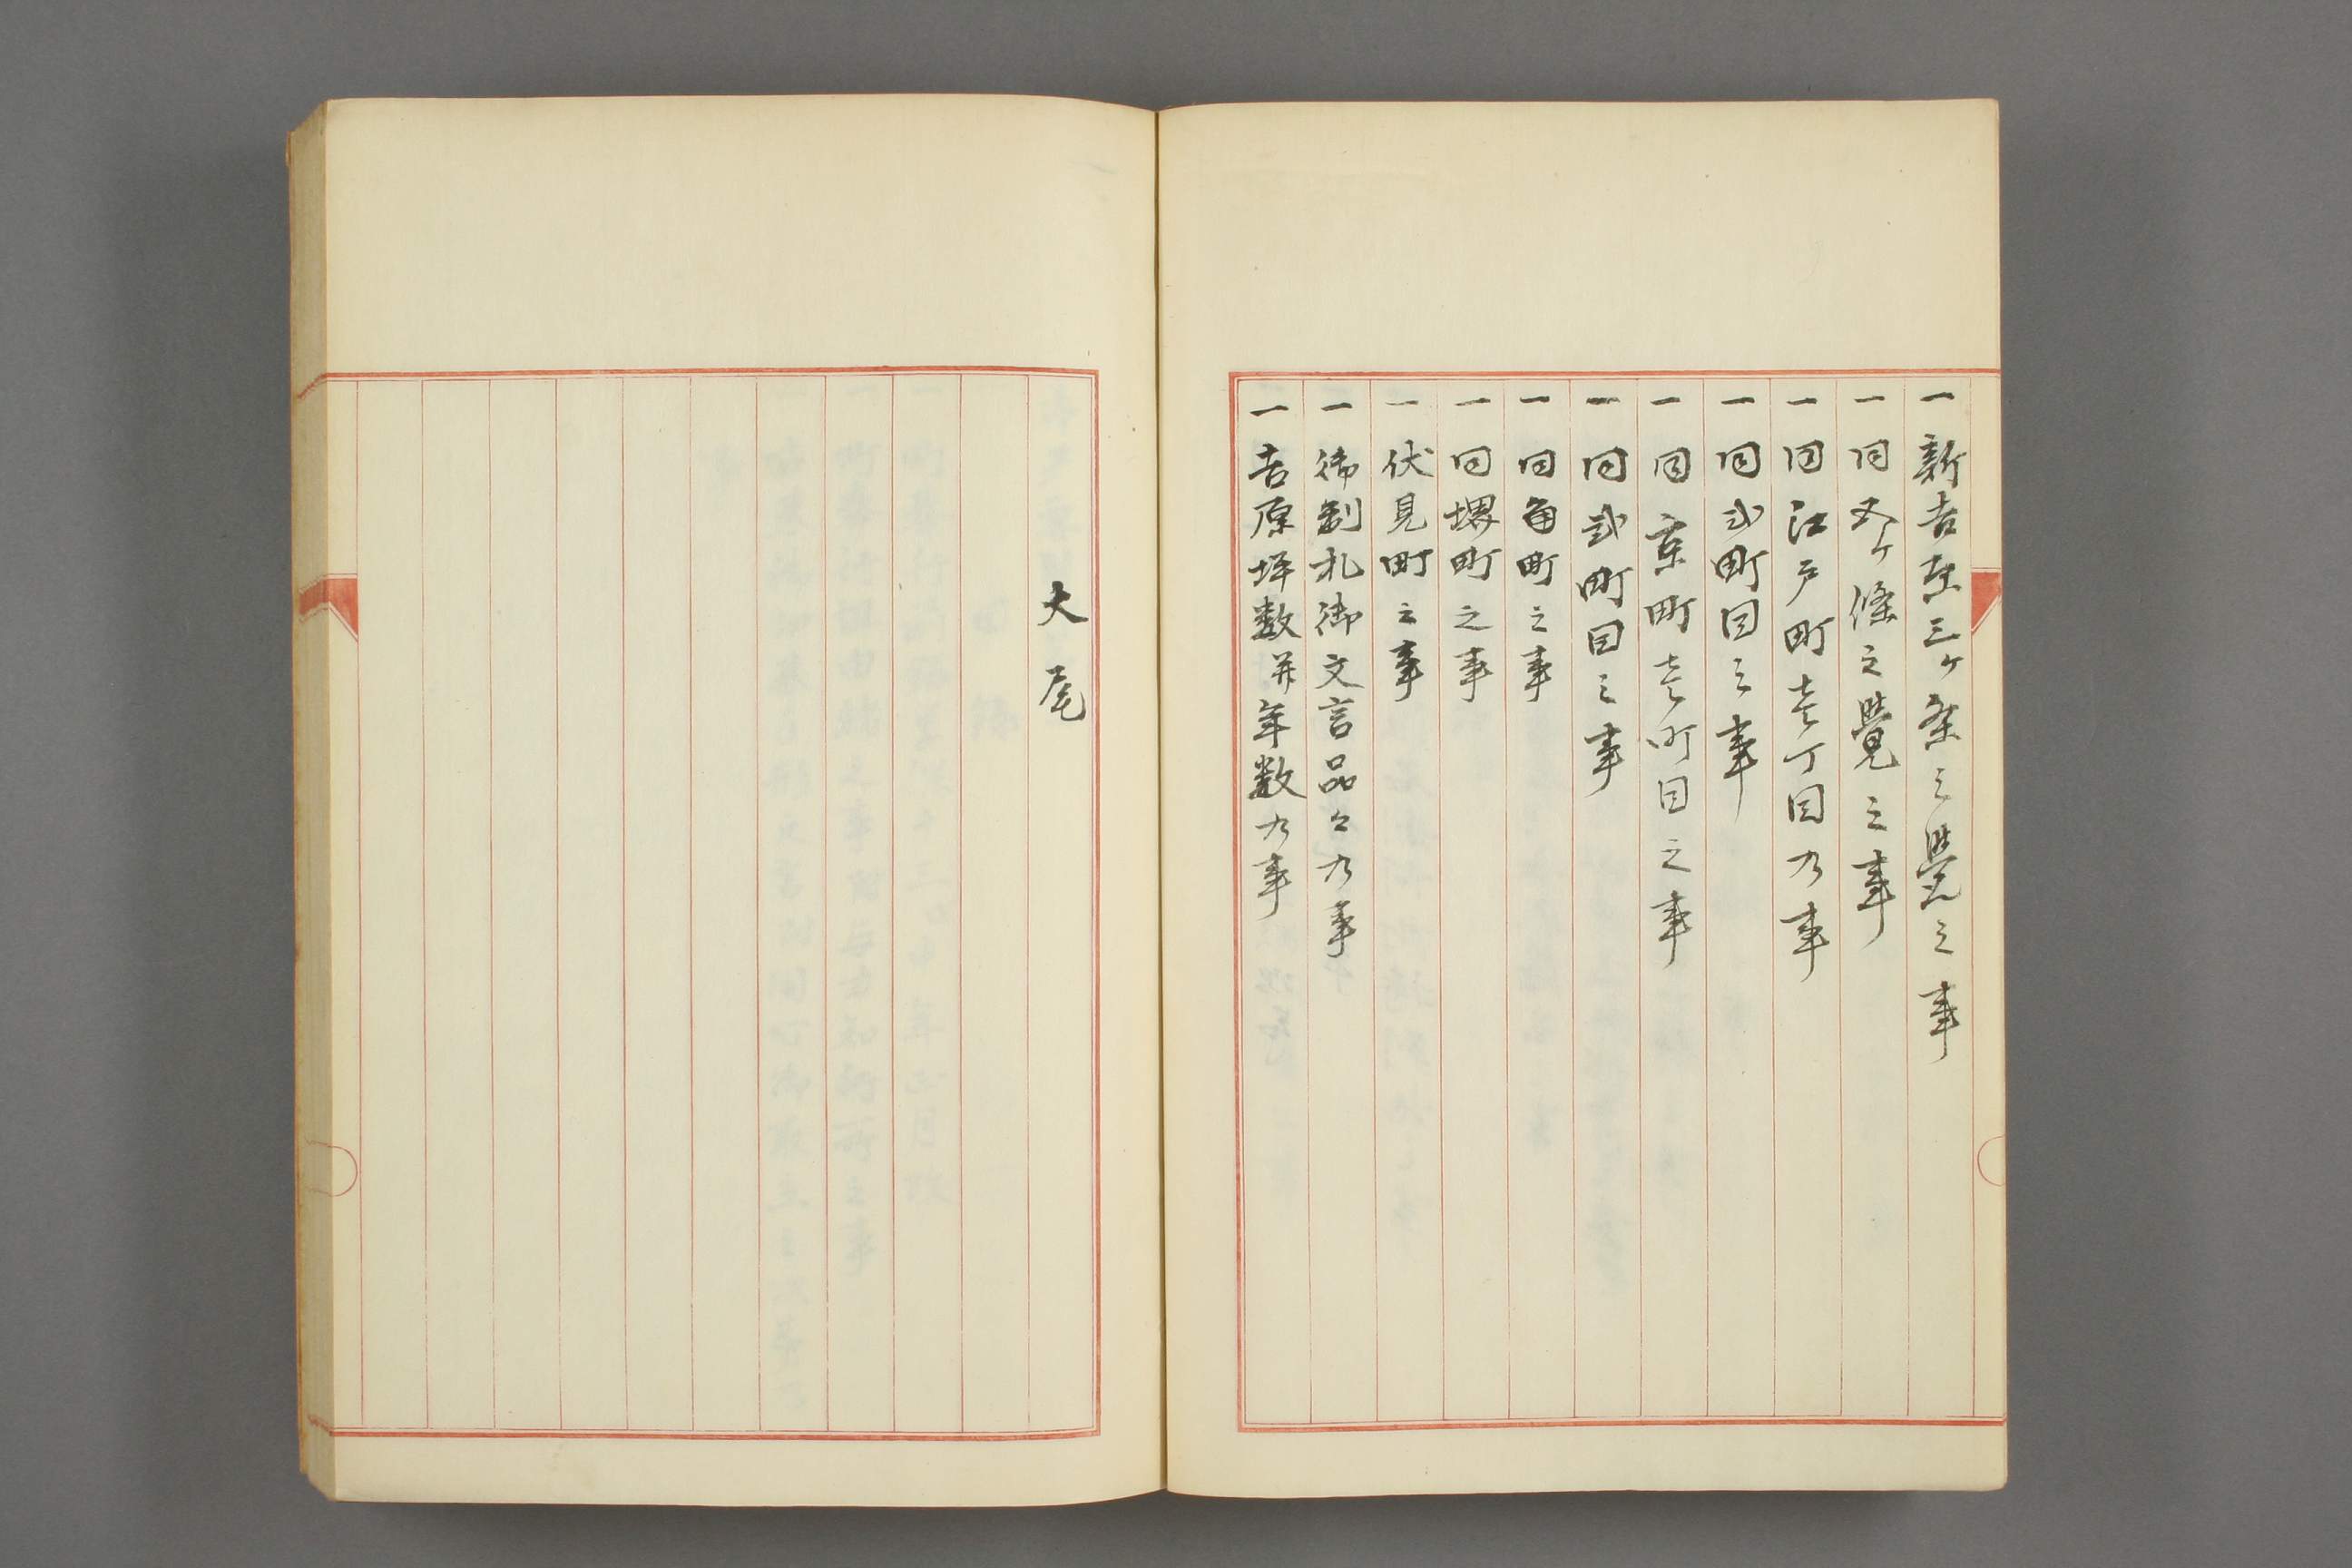 一 新吉原三ヶ条之覺之事
一 同五ヶ條之覺之事
一 同江戸町壱丁目乃事
一 同弐町目之事
一 同京町壱町目之事
一 同弐町目之事
一 同角町之事
一 同堺町之事
一 伏見町之事
一 御制札御文言品々乃事
一 吉原坪数并年数乃事
大尾